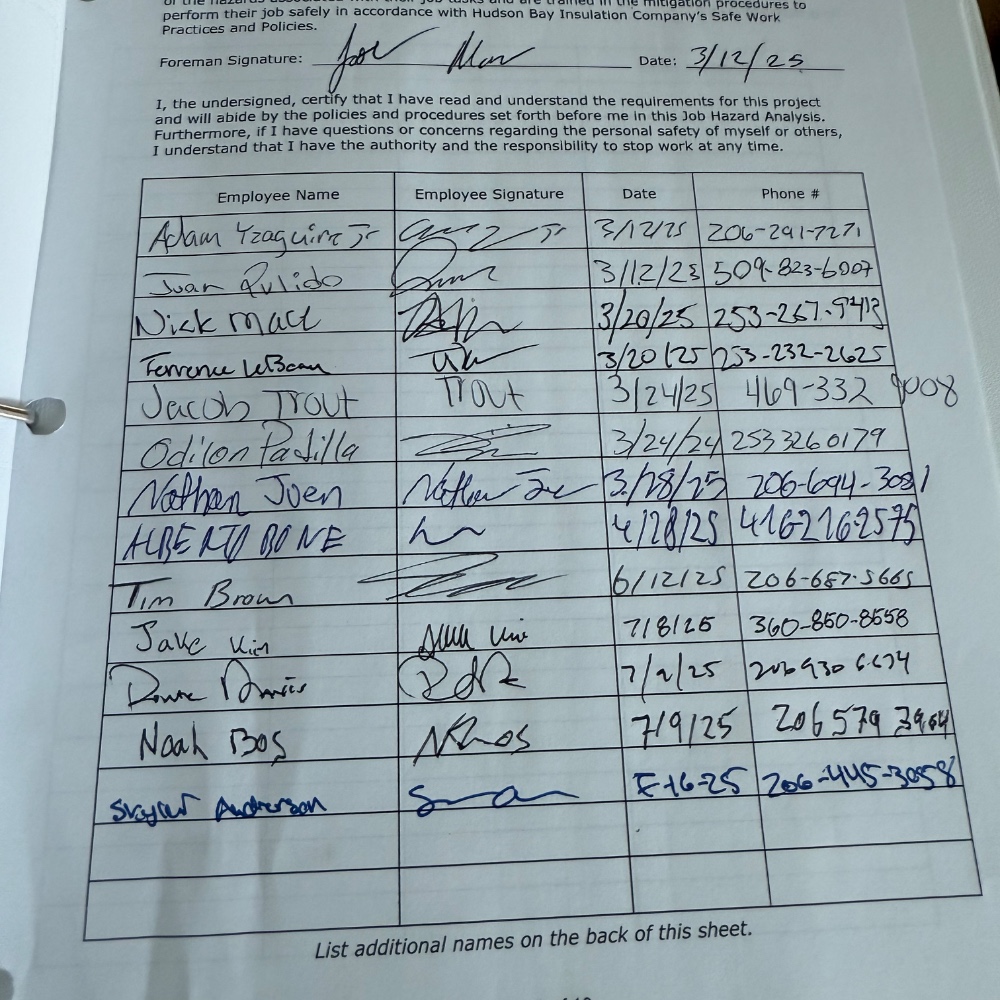 perform their job safely in accordance with Hudson Bay Insulation Company's Safe Work
Practices and Policies.
Foreman Signature: Date: 3/12/25
I, the undersigned, certify that I have read and understand the requirements for this project
and will abide by the policies and procedures set forth before me in this Job Hazard Analysis.
Furthermore, if I have questions or concerns regarding the personal safety of myself or others,
I understand that I have the authority and the responsibility to stop work at any time.
Employee Name Employee Signature Date Phone #
Adam Yzaguirre Jr 3/12/25 206-291-7271
Juan Pulido 3/12/23 509-823-6007
Nick 3/20/25 253-267-9413
Terrence LeBeau 3/20/25 253-232-2625
Jacob Trout Trout 3/24/25 469-332 9008
Odilon Padilla 3/24/24 2533260179
Nathan Juen 3/28/25 206-694-3081
ALBERTO BONE 4/28/25 4162162575
Tim Brown 6/12/25 206-687-5665
Jake Kim 7/8/25 360-850-8558
Davis 7/9/25 206930
Noah Bos 7/9/25 206 579 3964
Skyler Anderson 16-25 206-445-3058
List additional names on the back of this sheet.